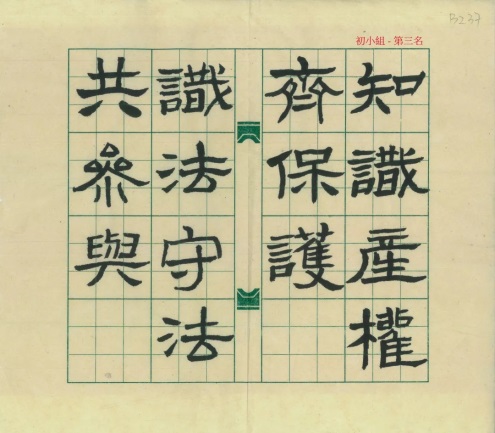 B237
初小組 - 第三名
知識產權
齊保護
識法守法
共參與